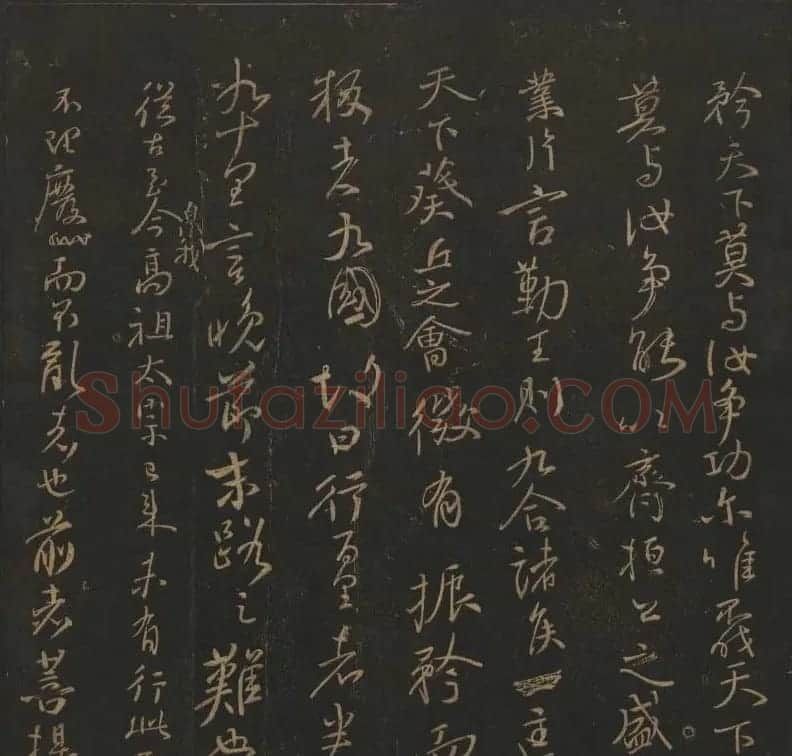 矜天下莫与汝争功尔唯不伐天下
莫与汝争能以齊桓公之盛
業片言勤王则九合諸侯一匡
天下葵丘之會微有振矜而
叛者九國故曰行百里者半
九十里言晚節末路之難也
從古至今暨我高祖太宗已来未有行此而
不理廢此而不亂者也前者菩提
Shufaziliao.COM